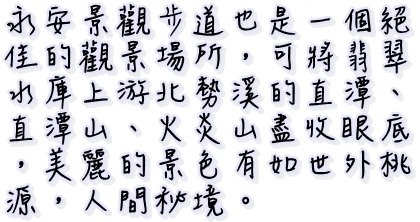 永安景觀步道也是一個絕
佳的觀景場所，可將翡翠
水庫上游北勢溪的直潭、
直潭山、火炎山盡收眼底
，美麗的景色有如世外桃
源，人間秘境。